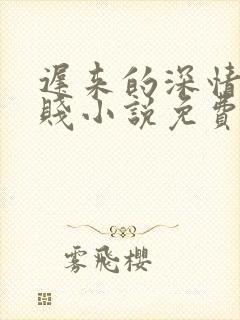 遲来的深情
賤小說免費
雾飛櫻